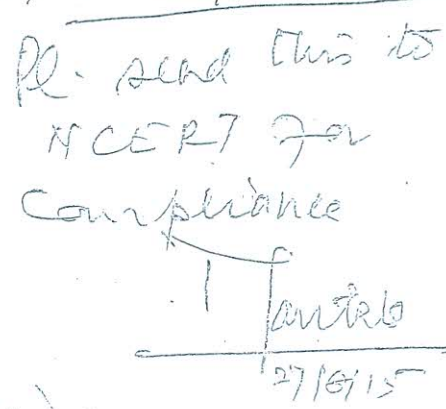 Pl. send this to
NCERT for
Compliance
27/8/15